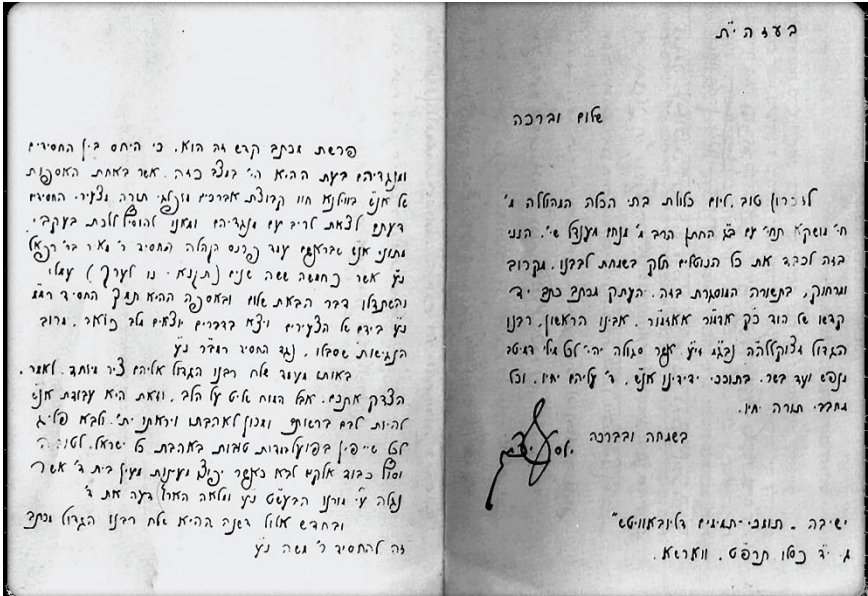 בעזהי"ת
שלום וברכה
לזכרון טוב, ליום כלולת בתי הכלה המהוללה מ'
חי' מושקא תחי' עם ב"ג החתן הרב מ' מנחם מענדל שי', הנני
בזה לכבד את כל הנוטלים חלק בשמחת לבבנו, מקרוב
ומרחוק, בתשורה המוסגרת בזה, העתק מכתב כתב יד
קדשו של הוד כ"ק אדמו"ר אאזמו"ר, אבינו הראשון, רבנו
הגדול נבג"מ זי"ע אשר סגולה יהי' לכל מילי דמיטב
מנפש ועד בשר, בתוככי ידידינו אנ"ש, ד' עליהם יחיו, וכל
מחבבי תורה יחיו.
בשמחה וברכה
יוסף יצחק
ישיבה - תומכי-תמימים דליובאוויטש"
ג. י"ד כסלו תרפ"ט. ווארשא.
פרשת מכתב קדש זה הוא, כי היחס בין החסידים
ומנגדיהם בעת ההיא הי' במצב כזה, אשר באחת האספות
של אנ"ש בווילנא חוו קבוצת אברכים מופלגי תורה מצעירי החסידים
דעתם לצאת לריב עם מנגדיהם ומאנו להוסיף ללכת בעקבי
מתוני אנ"ש שבראשם עמד פרנס הקהלה החסיד ר' מאיר בר' רפאל
נ"ע אשר כחמשה ששה שנים (תקנ"א - נו לערך) עמלו
והשתדלו דבר הבאת שלום ובאספה ההיא תמך החסיד רמ"מ
נ"ע בידם של הצעירים ויצא בדברים יוצאים מלב כואב, מרוב
הנגישות שסבלו, נגד החסיד רמב"ר נ"ע
באותו מעמד שלח רבנו הגדול אליהם ציר מיוחד, לאמר,
הצדק אתכם, אבל המוח שליט על הלב, וזאת היא עבודת אנ"ש
להיות לבם ברשותם ומכון לאהבתו ויראתו ית', ולבא פליג
לכל שייפין טובות באהבת כל ישראל, לטובה
וסוף כבוד אלקים לבא כאשר יפוצו מעינות מעין בית ד' אשר
נגלה ע"י מורנו הבעש"ט נ"ע ומלאה הארץ דעה את ד'
ובחדש אלול דשנה ההיא שלח רבנו הגדול מכתב
זה להחסיד ר' משה נ"ע